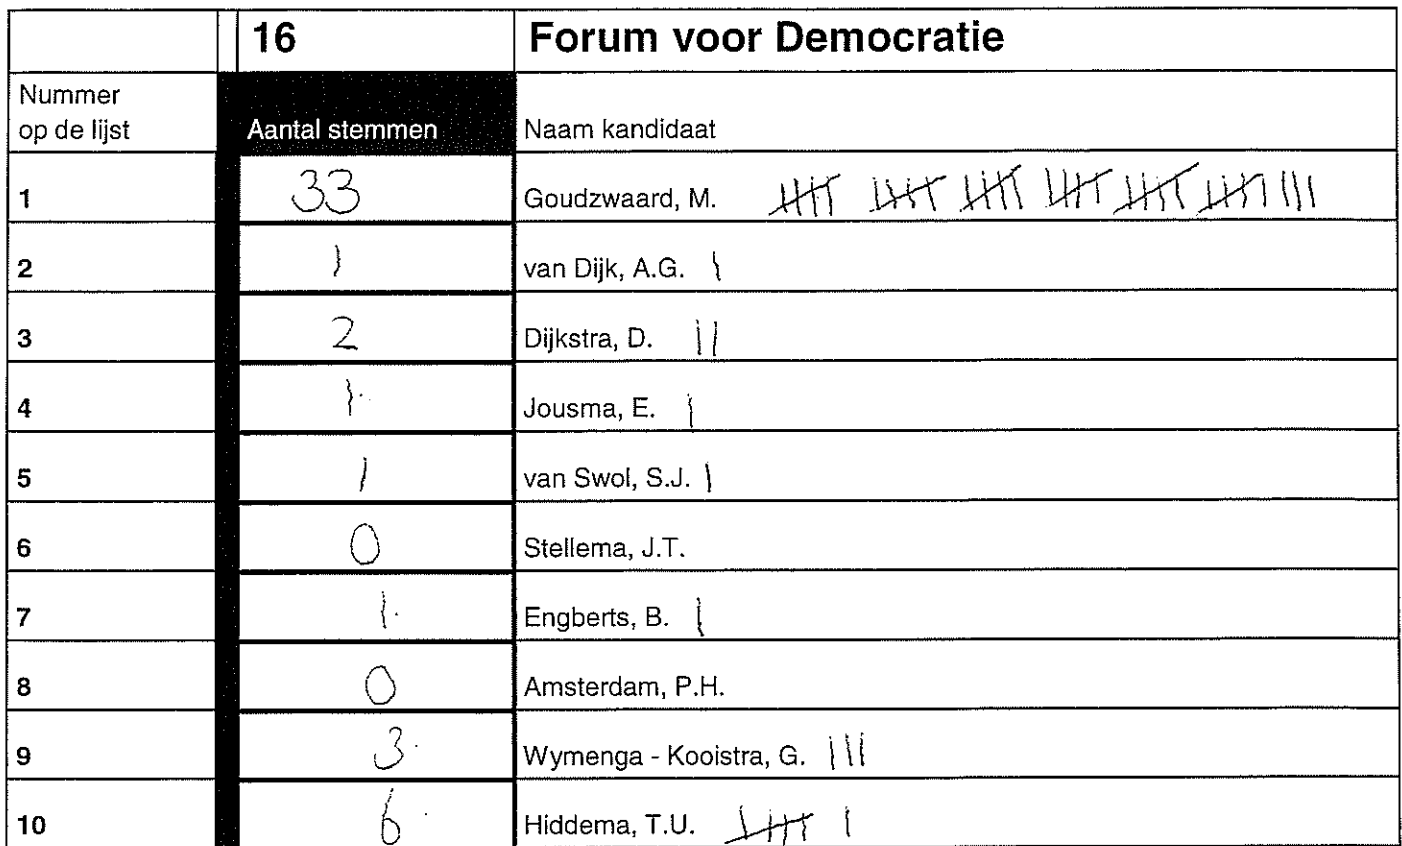 16 Forum voor Democratie
Nummer
op de lijst Aantal stemmen Naam kandidaat
1 33 Goudzwaard, M.
2 1 van Dijk, A.G.
3 2 Dijkstra, D.
4 1 Jousma, E.
5 1 van Swol, S.J.
6 0 Stellema, J.T.
7 1 Engberts, B.
8 0 Amsterdam, P.H.
9 3 Wymenga - Kooistra, G.
10 6 Hiddema, T.U.